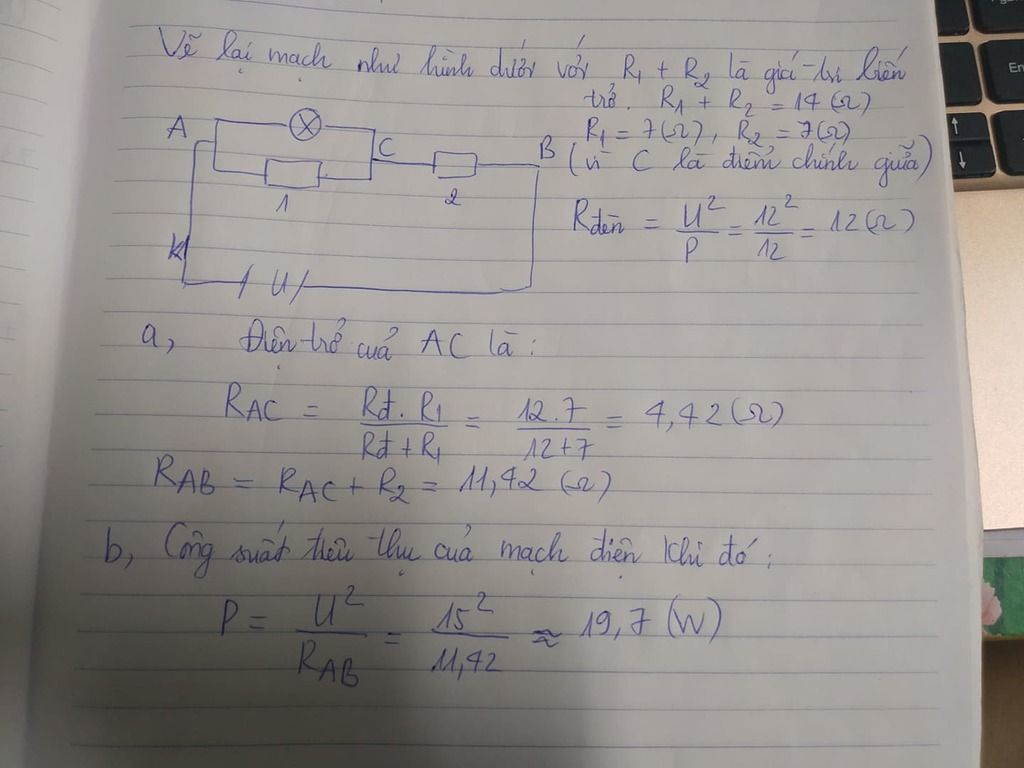 Vẽ lại mạch như hình dưới với R₁ + R₂ là giá trị biến
trở. R₁ + R₂ = 14 (Ω)
R₁ = 7(Ω), R₂ = 7(Ω)
(vì C là điểm chính giữa)
A
C
B
1
2
K
U
Rđèn = U²/P = 12²/12 = 12(Ω)
a, Điện trở cuả AC là:
R_AC = Rđ.R₁/Rđ+R₁ = 12.7/12+7 = 4,42 (Ω)
R_AB = R_AC + R₂ = 11,42 (Ω)
b, Công suất tiêu thụ của mạch điện khi đó:
P = U²/R_AB = 15²/11,42 ≈ 19,7 (W)
En
↑
↓